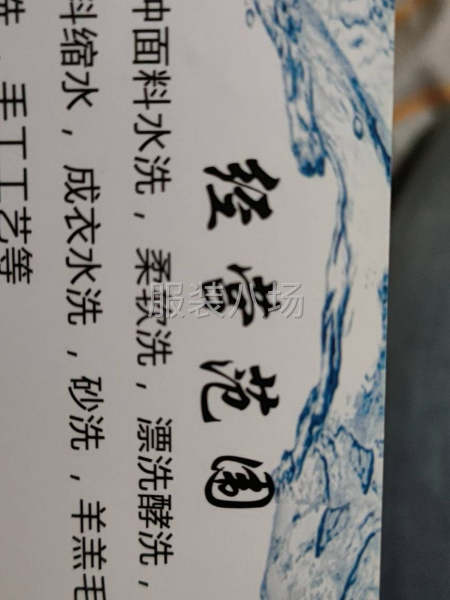 经营范围
种面料水洗，柔软洗，漂洗酵洗，
料缩水，成衣水洗，砂洗，羊羔毛
洗，手工工艺等
服装人场